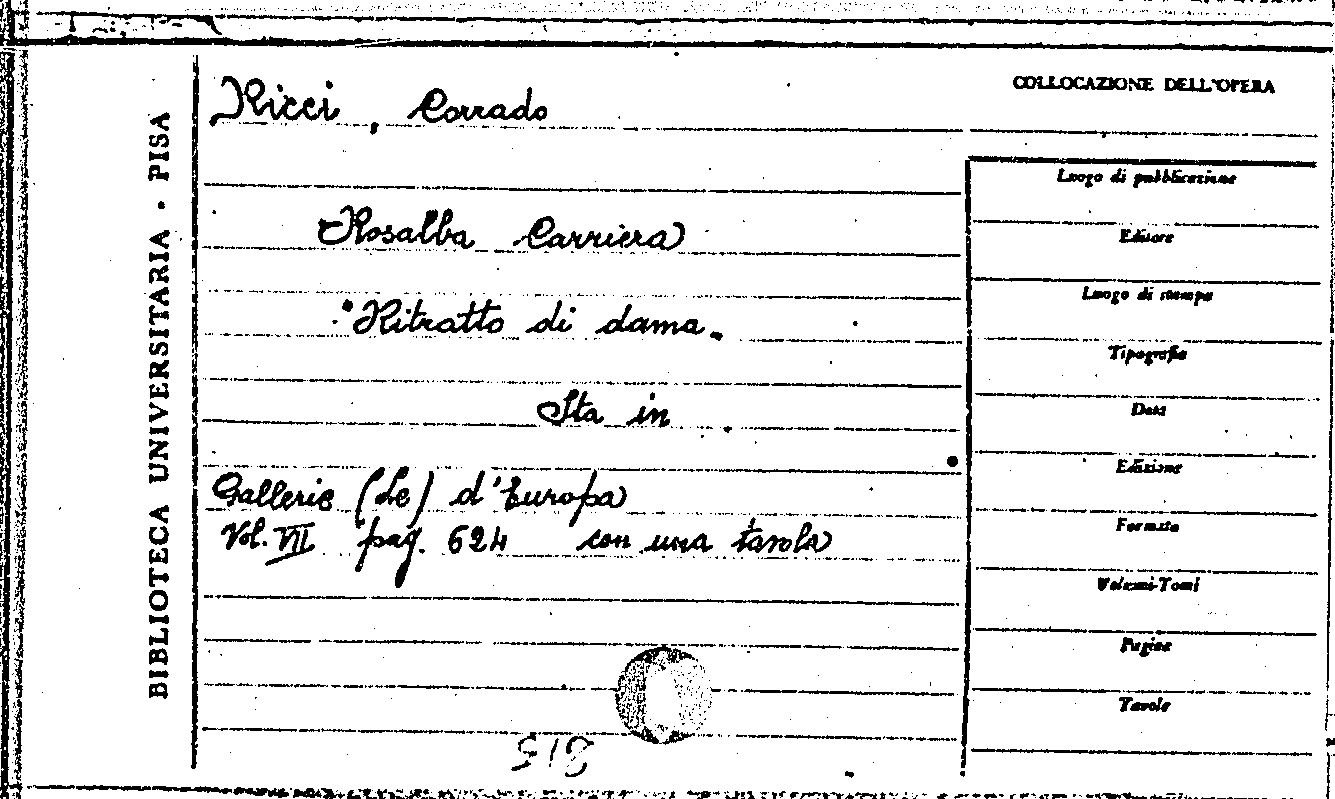 BIBLIOTECA UNIVERSITARIA · PISA
Ricci, Corrado
Rosalba Carriera
"Ritratto di dama.
Sta in
Gallerie (Le) d'Europa
Vol. VII pag. 624 con una tavola
COLLOCAZIONE DELL'OPERA
Luogo di pubblicazione
Editore
Luogo di stampa
Tipografia
Data
Edizione
Formato
Volumi-Tomi
Pagine
Tavole